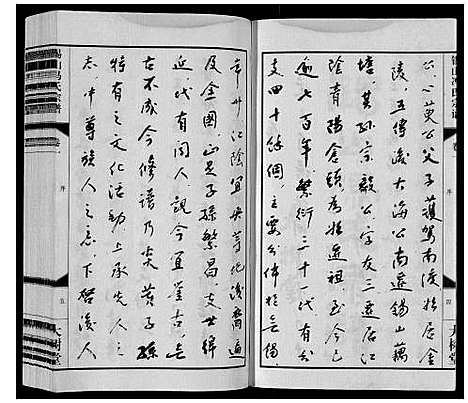 公、八英公父子護駕南渡始居金
陵，五傳後大海公南遷錫山藕
塘，其孫宗毅公字友三遷居江
陰青陽倉頭為始遷祖，至今已
逾七百年，繁衍三十一代有分
支四十餘個，主要分佈於無錫、
江陰宜興等地後裔遍
及全國，山足子孫繁昌，支世綿
延，代有聞人，觀今宜鑒古，無
古不成今修譜乃炎黃子孫
特有之文化活動上承先人之
志，中尊族人之意，下啓後人
錫山馮氏宗譜
卷一
序
四
大樹堂
錫山馮氏宗譜
卷一
序
五
大樹堂